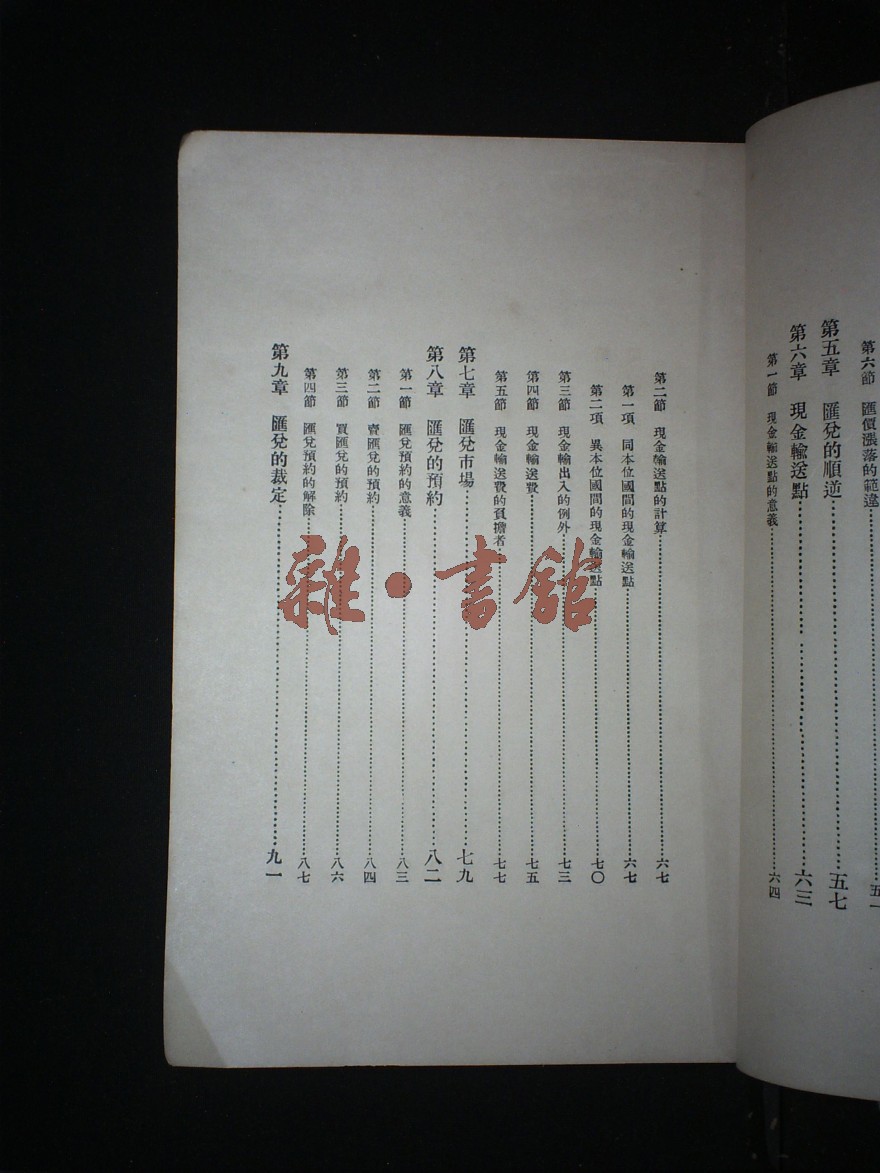 第六節　匯價漲落的範違……五一
第五章　匯兌的順逆……五七
第六章　現金輸送點……六三
第一節　現金輸送點的意義……六四
第二節　現金輸送點的計算……六七
第一項　同本位國間的現金輸送點……六七
第二項　異本位國間的現金輸送點……七〇
第三節　現金輸出入的例外……七三
第四節　現金輸送費……七五
第五節　現金輸送費的負擔者……七七
第七章　匯兌市場……七九
第八章　匯兌的預約……八二
第一節　匯兌預約的意義……八三
第二節　賣匯兌的預約……八四
第三節　買匯兌的預約……八六
第四節　匯兌預約的解除……八七
第九章　匯兌的裁定……九一
雜·書館